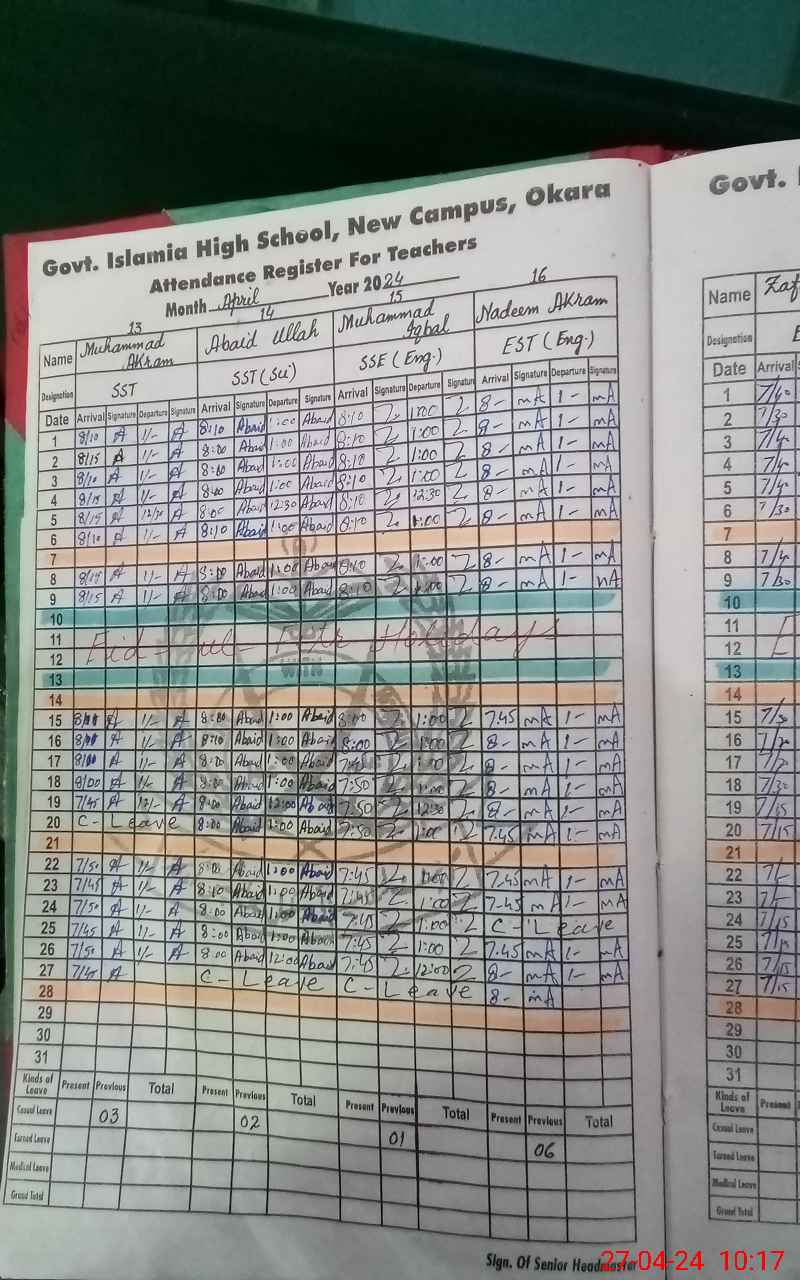 Govt. Islamia High School, New Campus, Okara
Attendance Register For Teachers
Month April Year 2024
13 14 15 16
Name Muhammad Akram Abaid Ullah Muhammad Iqbal Nadeem Akram
Designation SST SST (Sci) SSE (Eng.) EST (Eng.)
Date Arrival Signature Departure Signature Arrival Signature Departure Signature Arrival Signature Departure Signature Arrival Signature Departure Signature
1 8/10 A 1/- A 8:10 Abaid 1:00 Abaid 8:10 1:00 8- mA 1- mA
2 8/15 A 1/- A 8:00 Abaid 1:00 Abaid 8:10 1:00 8- mA 1- mA
3 8/10 A 1/- A 8:00 Abaid 1:00 Abaid 8:10 1:00 8- mA 1- mA
4 8/15 A 1/- A 8:00 Abaid 1:00 Abaid 8:10 1:00 8- mA 1- mA
5 8/15 A A 8:00 Abaid 12:30 Abaid 8:10 12:30 8- mA 1- mA
6 8/10 A 1/- A 8:10 Abaid 1:00 Abaid 8:10 1:00 8- mA 1- mA
7
8 A 1/- A 8:00 Abaid 1:00 Abaid 8:10 1:00 8- mA 1- mA
9 8/15 A 1/- A 8:00 Abaid 1:00 Abaid 8:10 1:00 8- mA 1- mA
10
11 Eid-ul-Fitr Holidays
12
13
14
15 A 1/- A 8:00 Abaid 1:00 Abaid 8:00 1:00 7.45 mA 1- mA
16 A 1/- A 8:10 Abaid 1:00 Abaid 8:00 1:00 8- mA 1- mA
17 A 1/- A 8:00 Abaid 1:00 Abaid 1:00 8- mA 1- mA
18 8/00 A 1/- A 8:00 Abaid 1:00 Abaid 7:50 1:00 8- mA 1- mA
19 7/45 A 12/- A 8:00 Abaid 12:00 Abaid 7:50 12:30 8- mA 1- mA
20 C-Leave 8:00 Abaid 1:00 Abaid 7:50 1:00 7.45 mA 1- mA
21
22 7/50 A 1/- A 8:00 Abaid 1:00 Abaid 7:45 1:00 7.45 mA 1- mA
23 7/45 A 1/- A 8:10 Abaid 1:00 Abaid 7:45 1:00 7-45 mA 1- mA
24 7/50 A 1/- A 8:00 Abaid 1:00 Abaid 7:45 1:00 C-Leave
25 7/45 A 1/- A 8:00 Abaid 1:00 Abaid 7:45 1:00 7.45 mA 1- mA
26 7/50 A 1/- A 8:00 Abaid 12:00 Abaid 7:45 12:00 8- mA 1- mA
27 7/45 A C-Leave C-Leave 8- mA
28
29
30
31
Kinds of Leave Present Previous Total Present Previous Total Present Previous Total Present Previous Total
Casual Leave 03 02 01 06
Earned Leave
Medical Leave
Grand Total
Sign. Of Senior Headmaster
Govt.
Name
Designation
Date Arrival
1 7/40
2 7/30
3 7/40
4 7/40
5 7/40
6 7/30
7
8 7/40
9 7/30
10
11
12
13
14
15 7/30
16
17
18 7/30
19 7/15
20 7/15
21
22
23
24 7/15
25
26 7/15
27 7/15
28
29
30
31
Kinds of Leave Present
Casual Leave
Earned Leave
Medical Leave
Grand Total
27-04-24 10:17